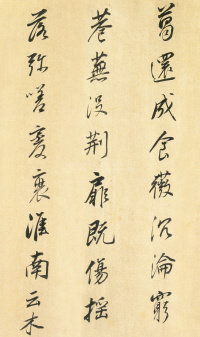 葛還成食薇沉淪窮
巷蕪没荆扉既傷摇
落弥嗟变衰淮南云木